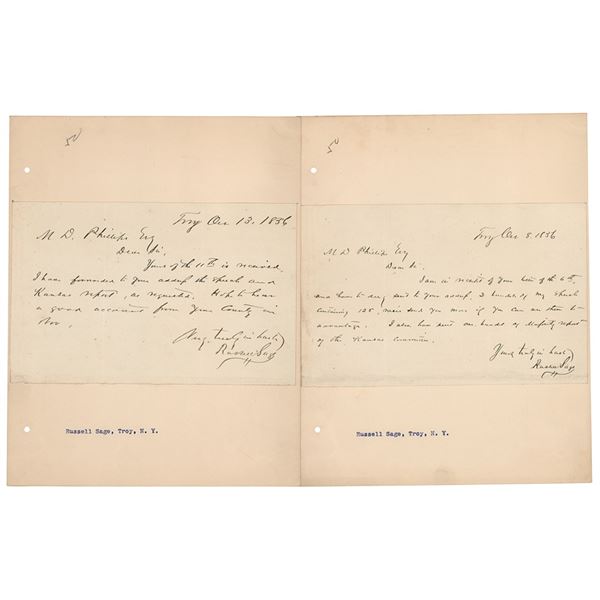 50
Troy Oct 13. 1856
M D. Phillips Esq
Dear Sir.
Yours of the 11th is received.
I have forwarded to your address the Speech and
Kansas report, as requested. Hope to hear
a good account from your County in
Nov.
Very truly in haste
Russell Sage
Russell Sage, Troy, N. Y.
50
Troy Oct 8. 1856
M D Phillips Esq
Dear Sir.
I am in receipt of your letter of the 6th,
and have to day sent to your address, 2 bundles of my Speech
containing 125, more send you more if you can use them to
advantage. I also have sent one bundle of Majority report
of the Kansas Commission.
Yours truly in haste
Russell Sage
Russell Sage, Troy, N. Y.